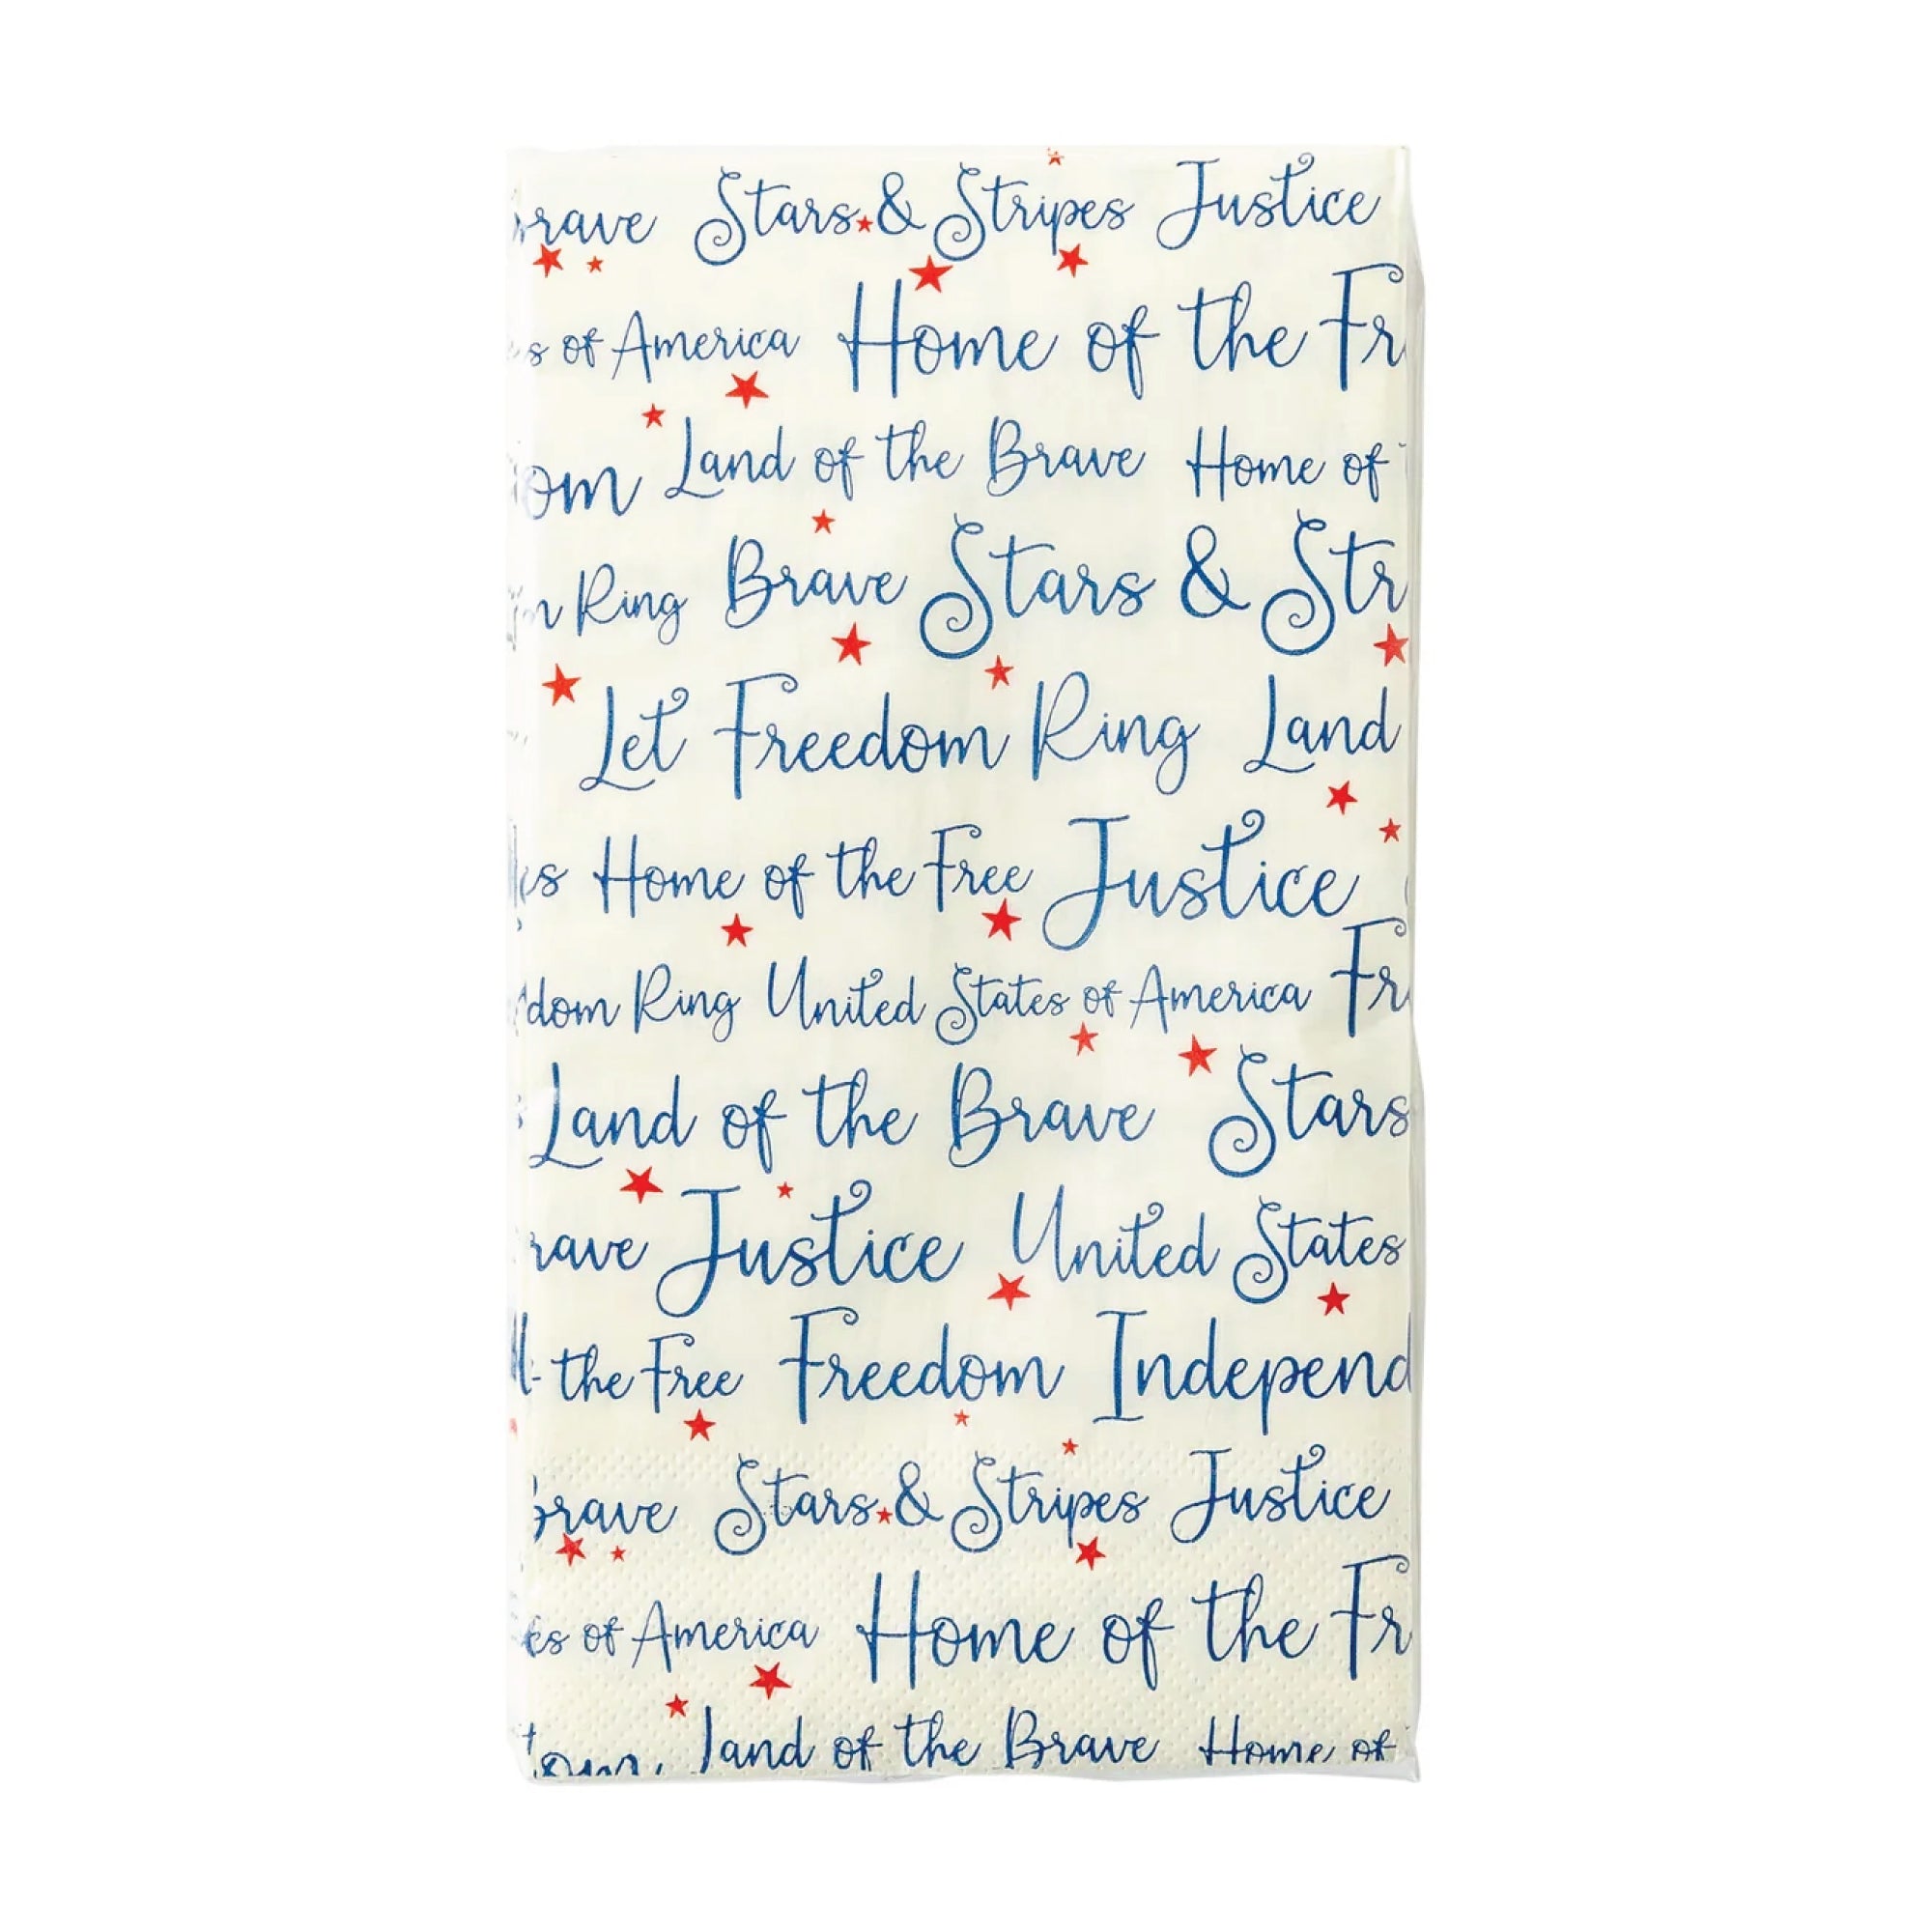 Brave Stars & Stripes Justice
s of America Home of the Fr
om Land of the Brave Home of
m Ring Brave Stars & Str
Let Freedom Ring Land
es Home of the Free Justice
dom Ring United States of America Fr
Land of the Brave Stars
rave Justice United States
the Free Freedom Independ
Brave Stars & Stripes Justice
es of America Home of the Fr
Land of the Brave Home of